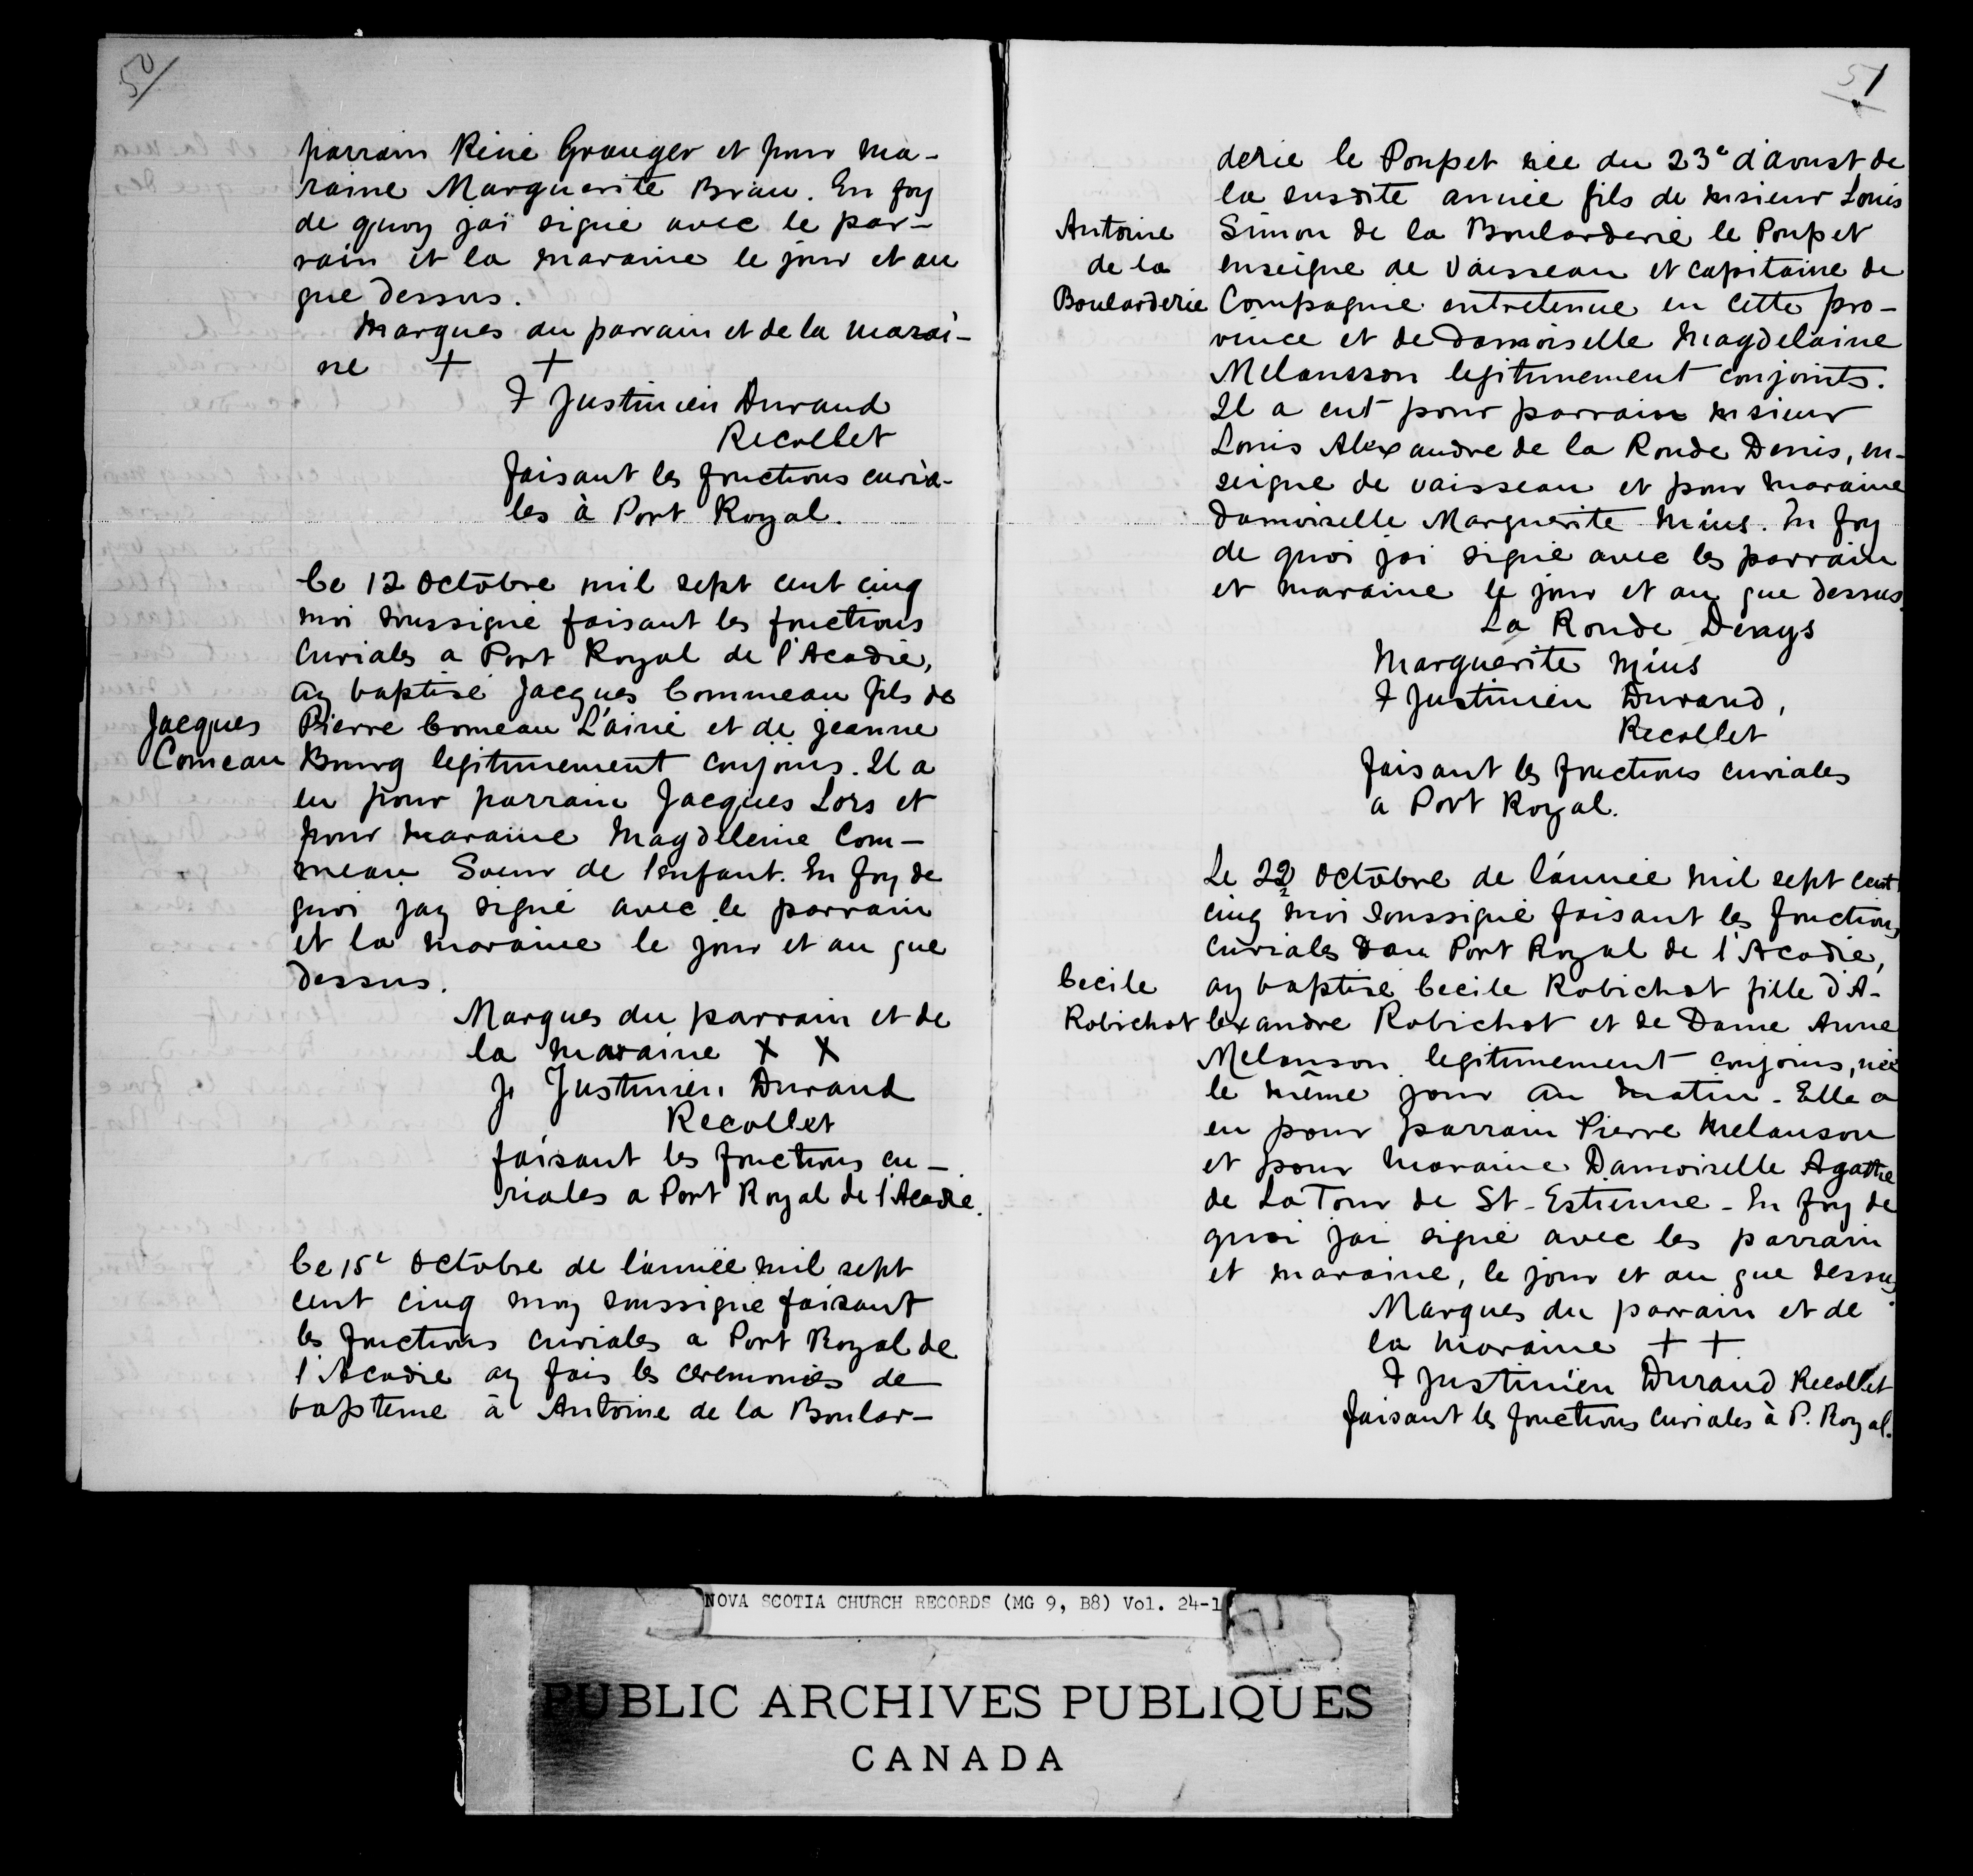 50
parrain René Granger et pour ma-
raine Marguerite Brau. En foy
de quoy jai signé avec le par-
rain et la maraine le jour et an
que dessus.
Marques du parrain et de la marai-
ne + +
F Justinien Durand
Recollet
faisant les fonctions curia-
les à Port Royal.
Ce 12 Octobre mil sept cent cinq
moi soussigné faisant les fonctions
Curiales a Port Royal de l'Acadie,
ay baptisé Jacques Commeau fils de
Jacques
Comeau
Pierre Comeau L'ainé et de Jeanne
Bourg legitimement conjoins. Il a
eu pour parrain Jacques Lors et
pour maraine Magdeleine Com-
meau Soeur de lenfant. En foy de
quoi jay signé avec le parrain
et la maraine le jour et an que
dessus.
Marques du parrain et de
la maraine X X
F Justinien Durand
Recollet
faisant les fonctions cu-
riales a Port Royal de l'Acadie.
Ce 15e Octobre de l'année mil sept
cent cinq moy soussigné faisant
les fonctions curiales a Port Royal de
l'Acadie ay fais les ceremonies de
bapteme à Antoine de la Boular-
51
derie le Poupet née du 23e d'aoust de
la susdite année fils de Msieur Louis
Antoine
de la
Boularderie
Simon de la Boularderie le Poupet
enseigne de Vaisseau et capitaine de
Compagnie entretenue en cette pro-
vince et de Damoiselle Magdelaine
Melansson legitimement conjoints.
Il a eut pour parrain Msieur
Louis Alexandre de la Ronde Denis, en-
seigne de vaisseau et pour maraine
Damoiselle Marguerite Mius. En foy
de quoi jai signé avec les parrain
et maraine le jour et an que dessus.
La Ronde Denys
Marguerite Mius
F Justinien Durand,
Recollet
faisant les fonctions curiales
a Port Royal.
Le 22 Octobre de l'année mil sept cent
cinq moi soussigné faisant les fonctions
curiales dau Port Royal de l'Acadie,
Cecile
Robichot
ay baptisé Cecile Robichot fille d'A-
lexandre Robichot et de Dame Anne
Melanson legitimement conjoins, née
le même jour au matin. Elle a
eu pour parrain Pierre Melanson
et pour maraine Damoiselle Agathe
de La Tour de St-Estienne - En foy de
quoi jai signé avec les parrain
et maraine, le jour et an que dessus.
Marques du parrain et de
la maraine + +
F Justinien Durand Recollet
faisant les fonctions curiales à P. Royal.
NOVA SCOTIA CHURCH RECORDS (MG 9, B8) Vol. 24-1
PUBLIC ARCHIVES PUBLIQUES
CANADA